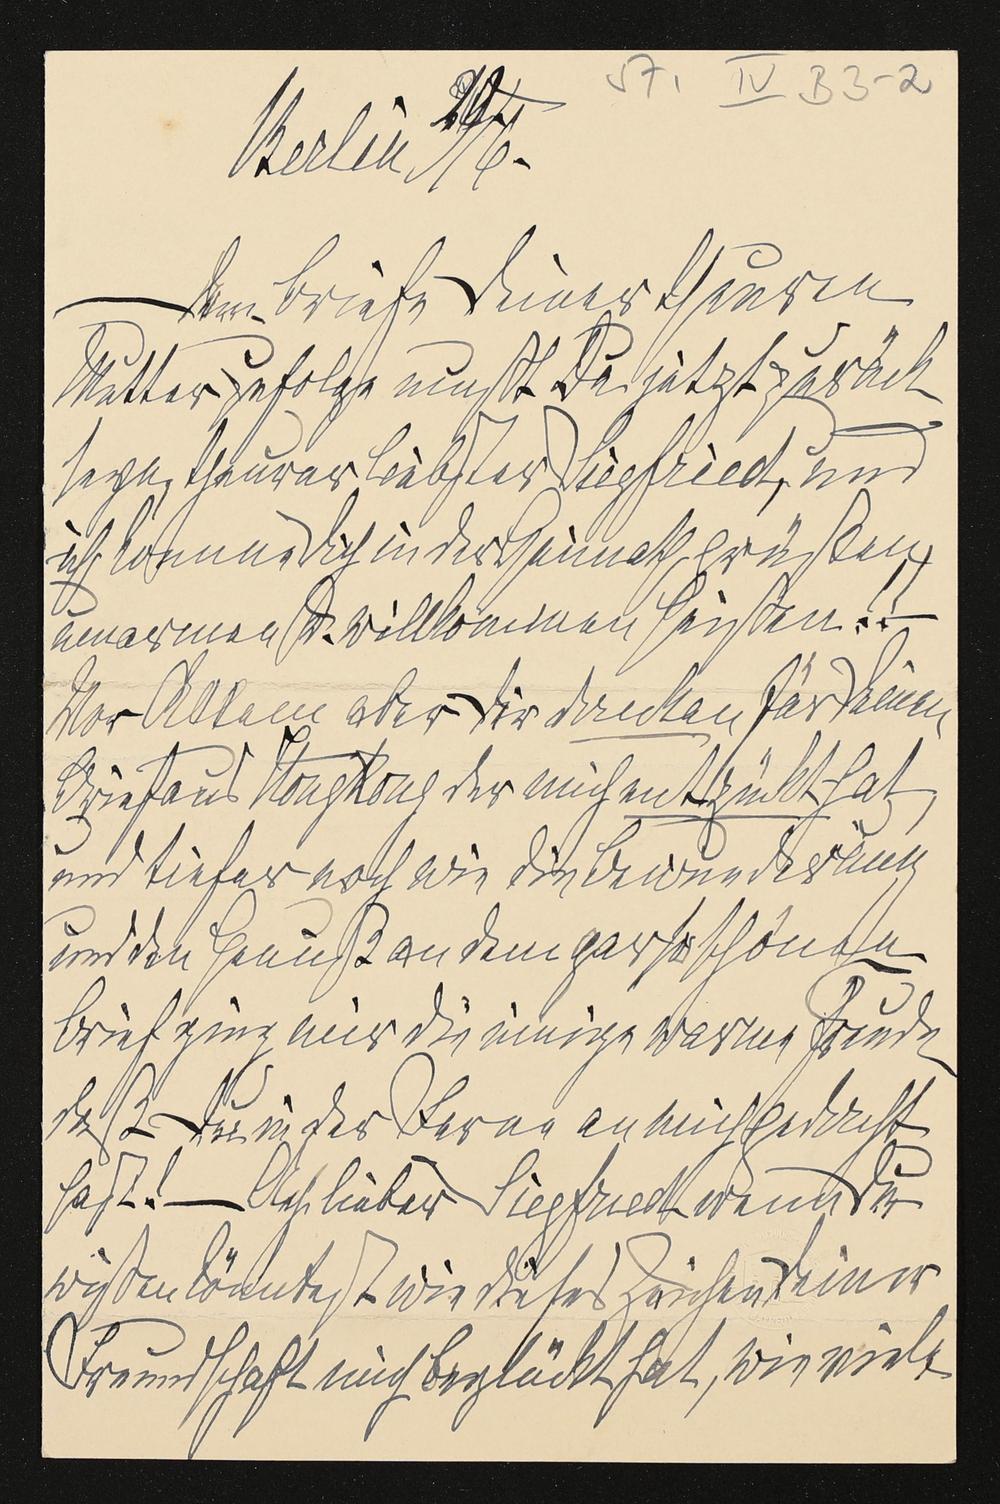 57. IV B 3-2
Berlin 20/6.
Dem Briefe Deiner theuren
Mutter zufolge mußt Du jetzt zurück
seyn, theurer liebster Siegfried, und
ich komme Dich in der Heimath grüßen,
umarmen & willkommen heißen!! —
Vor Allem aber Dir danken für Deinen
Brief aus Hongkong der mich entzückt hat,
und tiefer noch wie die Bewunderung
und den Genuß an dem gar so schönen
Brief ging mir die innige warme Freude
daß Du in der Ferne an mich gedacht
hast! — Ach lieber Siegfried wenn Du
wißen könntest wie dieses Zeichen Deiner
Freundschaft mich beglückt hat, wie viele